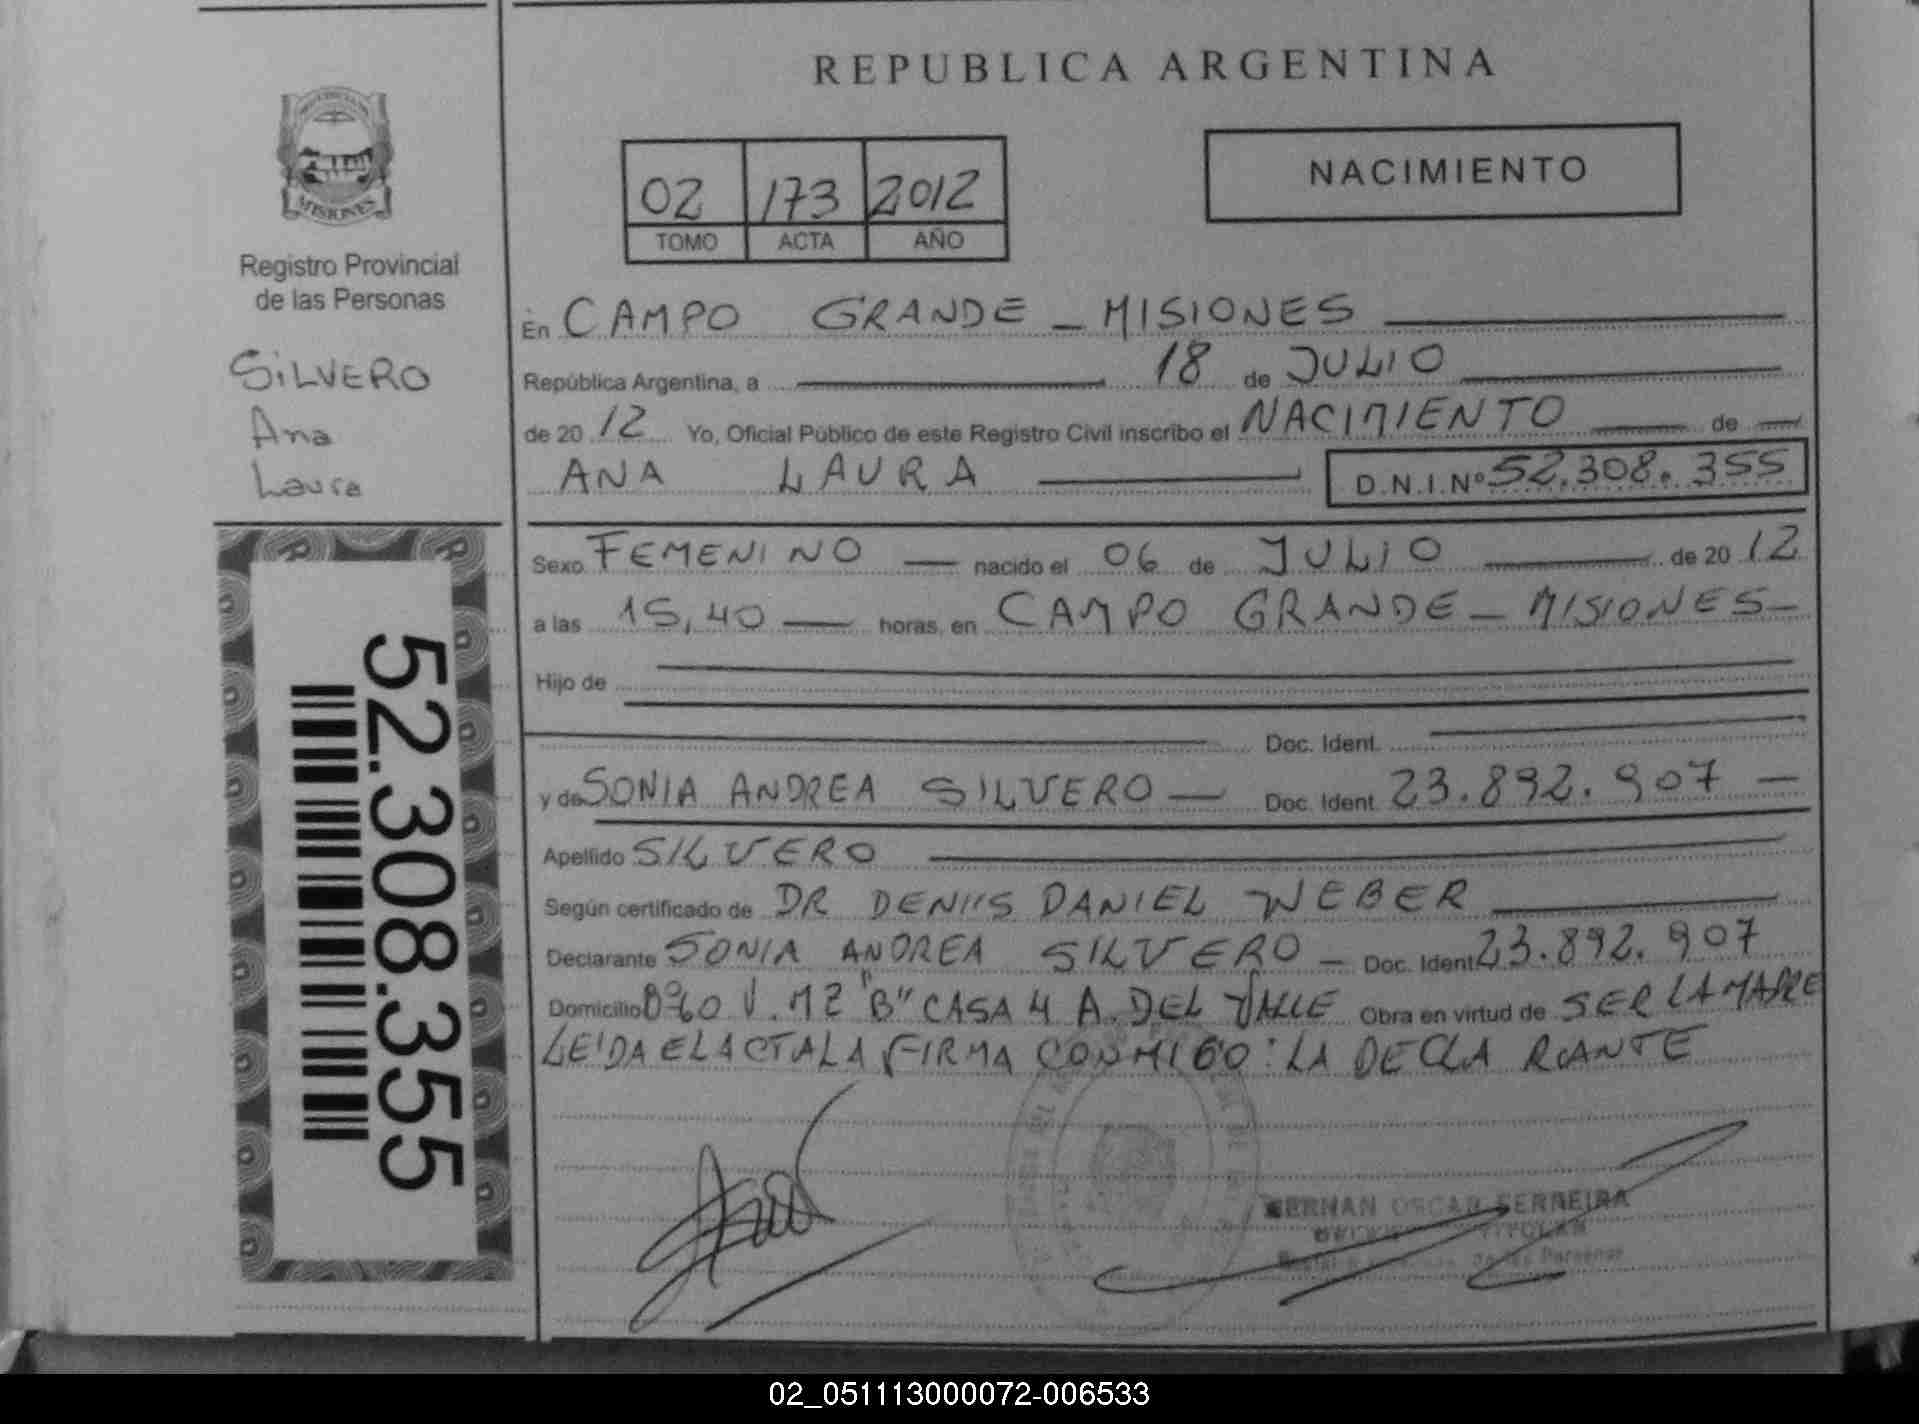 REPUBLICA ARGENTINA
MISIONES
Registro Provincial
de las Personas
SILVERO
Ana
Laura
02 173 2012
TOMO ACTA AÑO
NACIMIENTO
En CAMPO GRANDE - MISIONES
República Argentina, a 18 de JULIO
de 2012 Yo, Oficial Público de este Registro Civil inscribo el NACIMIENTO de
ANA LAURA D.N.I.Nº 52.308.355
Sexo FEMENINO nacido el 06 de JULIO de 2012
a las 15,40 horas, en CAMPO GRANDE - MISIONES -
Hijo de
Doc. Ident.
y de SONIA ANDREA SILVERO - Doc. Ident. 23.892.907 -
Apellido SILVERO
Según certificado de DR DENIIS DANIEL WEBER
Declarante SONIA ANDREA SILVERO - Doc. Ident 23.892.907
Domicilio V. MZ "B" CASA 4 A. DEL VALLE Obra en virtud de SER LA MADRE
LEIDA EL ACTA LA FIRMA CONMIGO: LA DECLARANTE
52.308.355
OSCAR FERREIRA
TITULAR
de las Personas
02_051113000072-006533